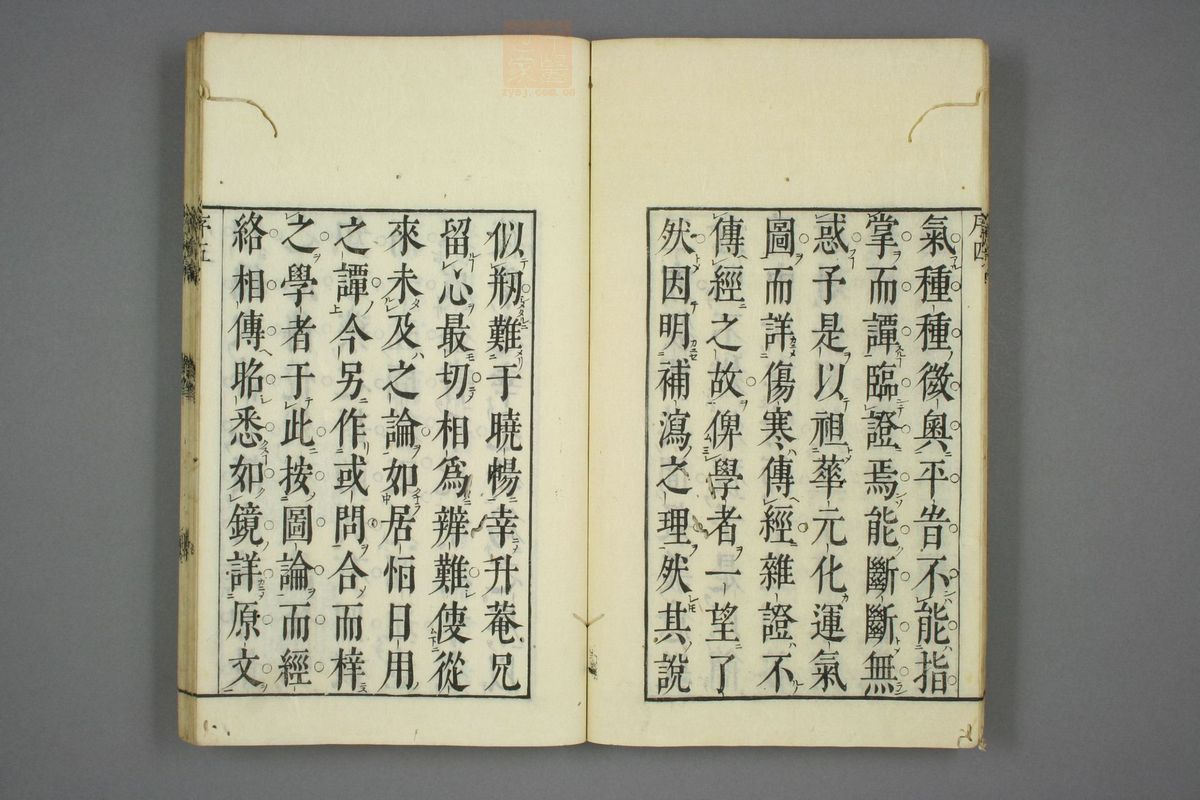 序四
氣種種微奧平昔不能指
掌而譚臨證焉能斷斷無
惑予是以祖華元化運氣
圖而詳傷寒傳經雜證不
傳經之故俾學者一望了
然因明補瀉之理然其說
似剏難于曉暢幸升菴兄
留心最切相爲辨難使從
來未及之論如居恒日用
之譚今另作或問合而梓
之學者于此按圖論而經
絡相傳昭悉如鏡詳原文
序五
zysj.com.cn